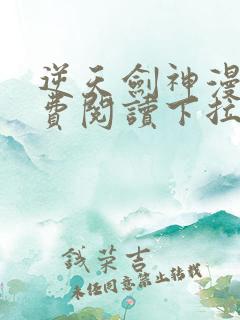 逆天劍神漫
費閱讀下拉
錢荣吉
未经同意禁止转载